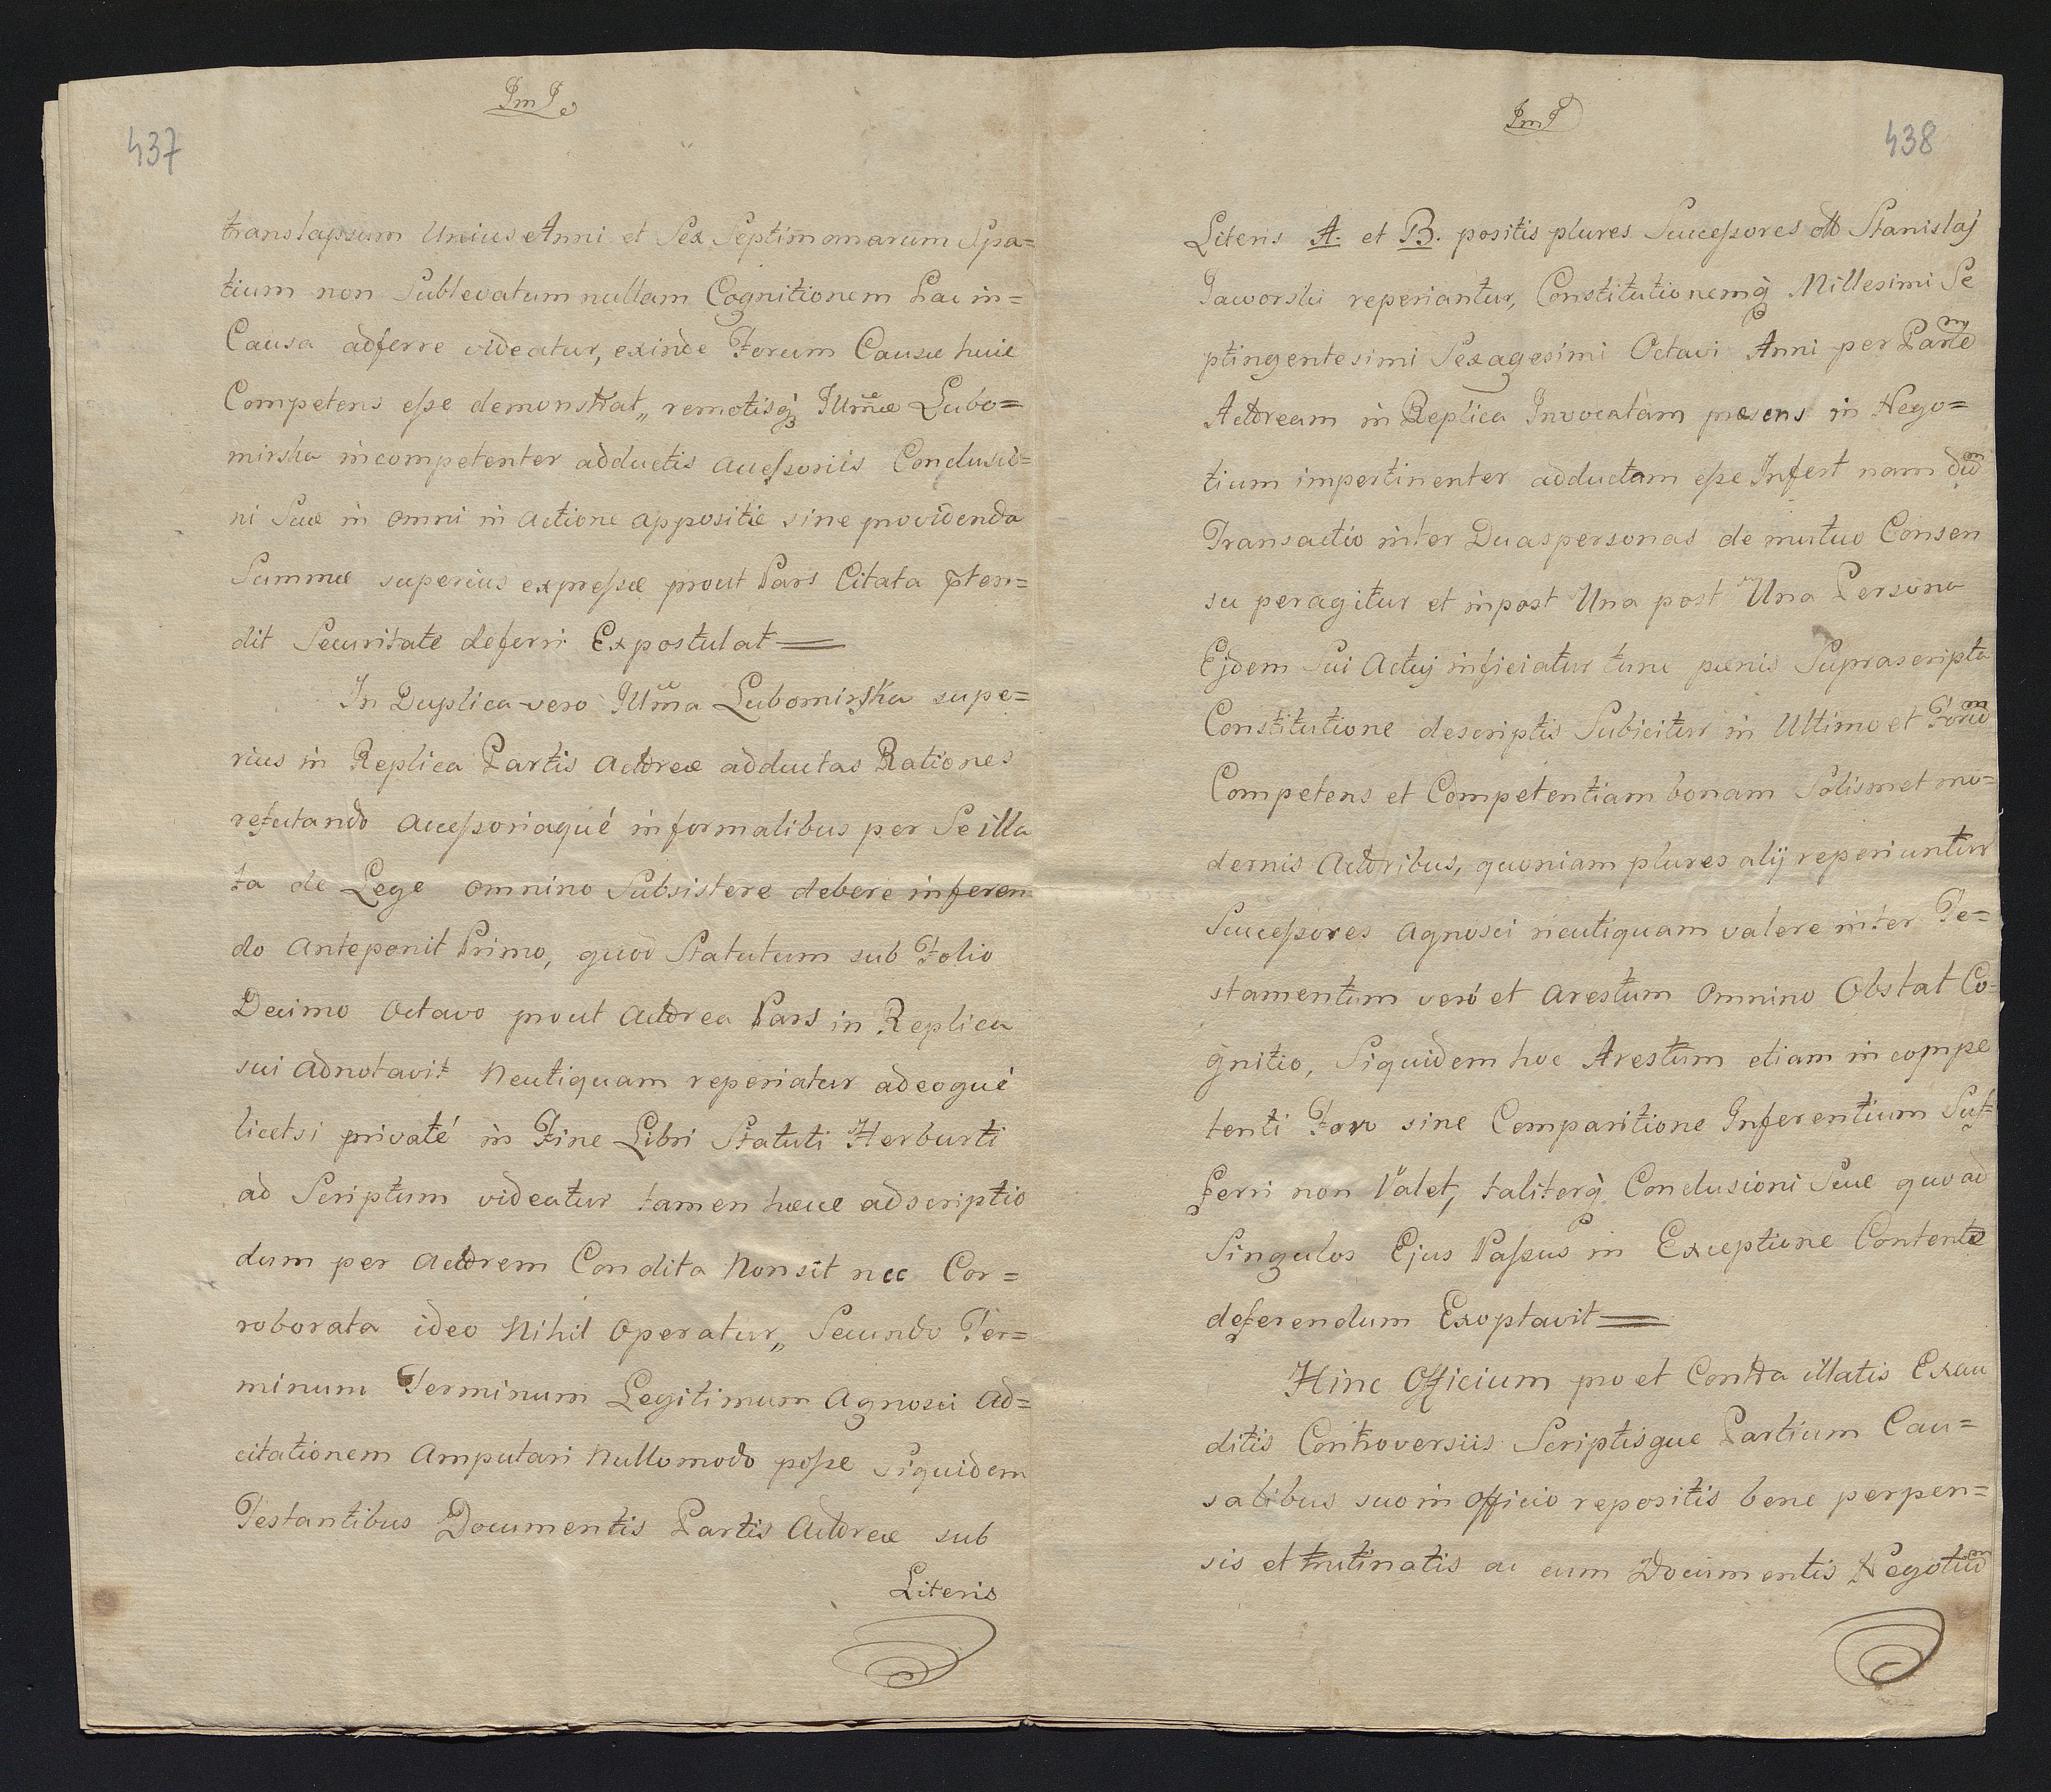 437
translapsum Unius Anni et Sex Septimanarum Spa=
tium non Sublevatum nullam Cognitionem hac in=
Causa adferre videatur, exinde Forum Causæ huic
Competens eſse demonstrat„ remotisq̃ Illmæ Lubo=
mirska incompetenter adductis acceſsoriis Conclusio=
ni Suæ in omni in actione appositæ sine providenda
Summæ superius expreſsæ prout Pars Citata p̃ten=
dit Securitate deferri Expostulat=
In Duplica vero Illma Lubomirska supe=
rius in Replica Partis Actoreæ adductas Rationes
refutando acceſsoriaqué informalibus per Se illa
ta de Lege omnino Subsistere debere inferen
do anteponit Primo, quod Statutum sub Folio
Decimo Octavo prout actorea Pars in Replica
sui adnotavit Neutiquam reperiatur adeoqué
licetsi privaté in Fine Libri Statuti Herburti
ad Scriptum videatur tamen hæce adscriptio
dum per actorem Condita Non sit nec Cor=
roborata ideo Nihil operatur„ Secundo Ter=
minum Terminum Legitimum agnosci ad=
citationem amputari Nullomodo poſse Siquidem
Testantibus Documentis Partis Actoreæ sub
Literis
438
Literis A. et B. positis plures Succeſsores Stanislaj
Jaworski reperiantur, Constitutionemq̃ Millesimi Se
ptingentesimi Sexagesimi Octavi Anni per Parte
Actoream in Replica Invocatam præsens in Nego=
tium impertinenter adductam eſse Infert nam dũ
Transactio inter Duas personas de mutuo Consen
su peragitur et inpost Una post Una Persona
Ejdem Sui Actuj inficiatur tunc pænis Suprascripta
Constitutione descriptis Subicitur in Ultimo et Forũ
Competens et Competentiam bonam Solismet mo=
dernis actoribus, quoniam plures alij reperiuntur
Succeſsores agnosci neutiquam valere inter Te=
stamentum veró et arestum omnino Obstat Co=
gnitio, Siquidem hoc Arestum etiam in compe
tenti Foro sine Comparitione Inferentium Suf=
ferri non Valet, taliterq̃ Conclusioni Suæ quoad
Singulos Ejus Paſsus in Exceptione Contentæ
deferendum Exoptavit=
Hinc Officium pro et Contra illatis Exau
ditis Controversiis Scriptisque Partium Cau=
salibus suo in officio repositis bene perpen=
sis et trutinatis ac cum Documentis Negotiũ